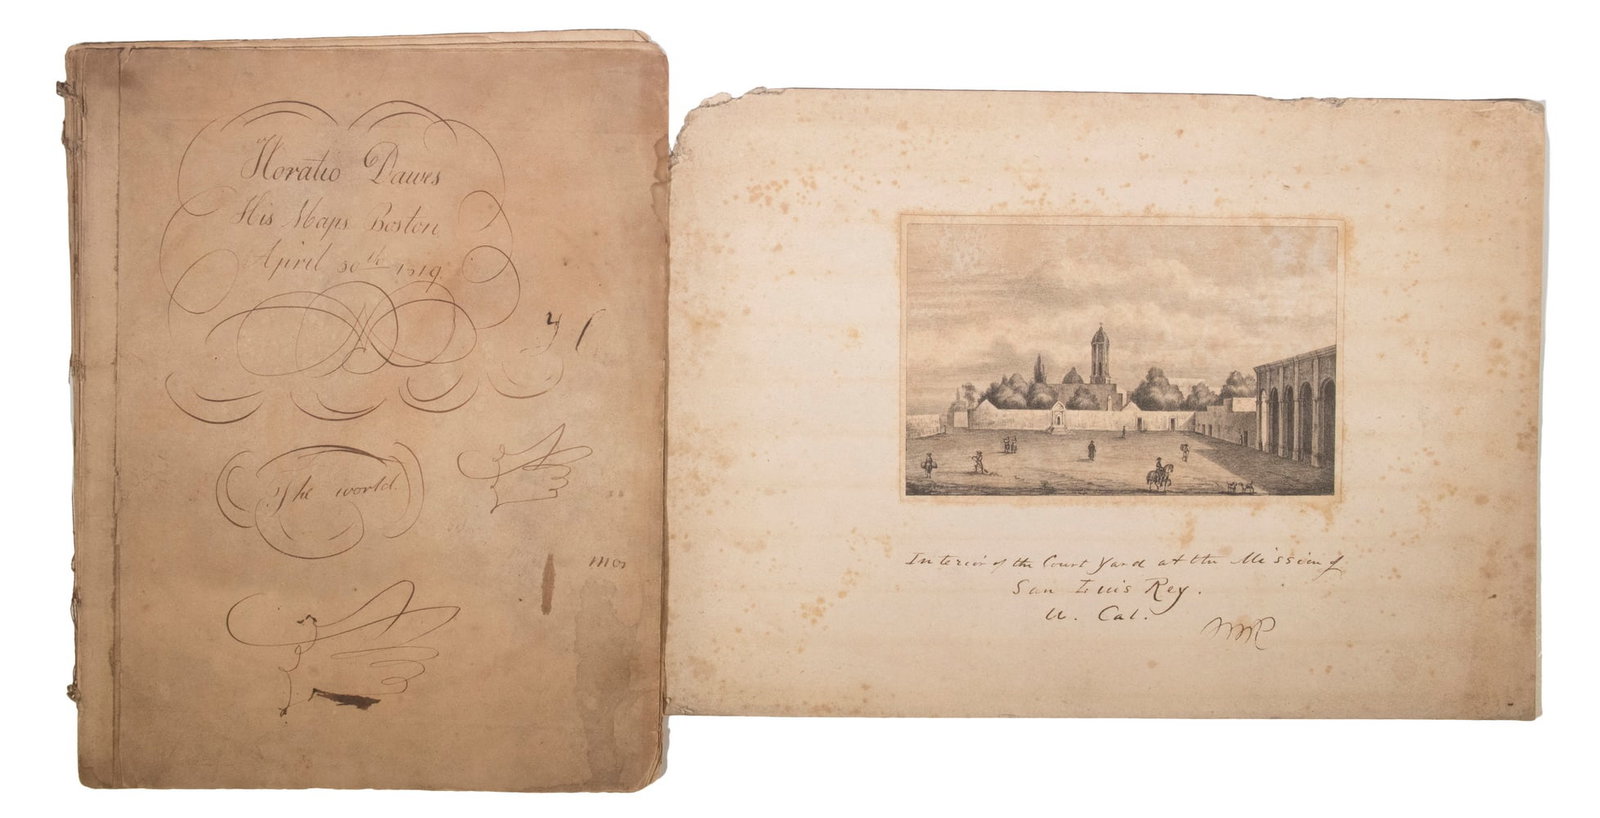 Horatio Dawes
His Maps Boston
April 30th 1819.
The world.
Interior of the Court Yard at the Mission of
San Luis Rey.
U. Cal.